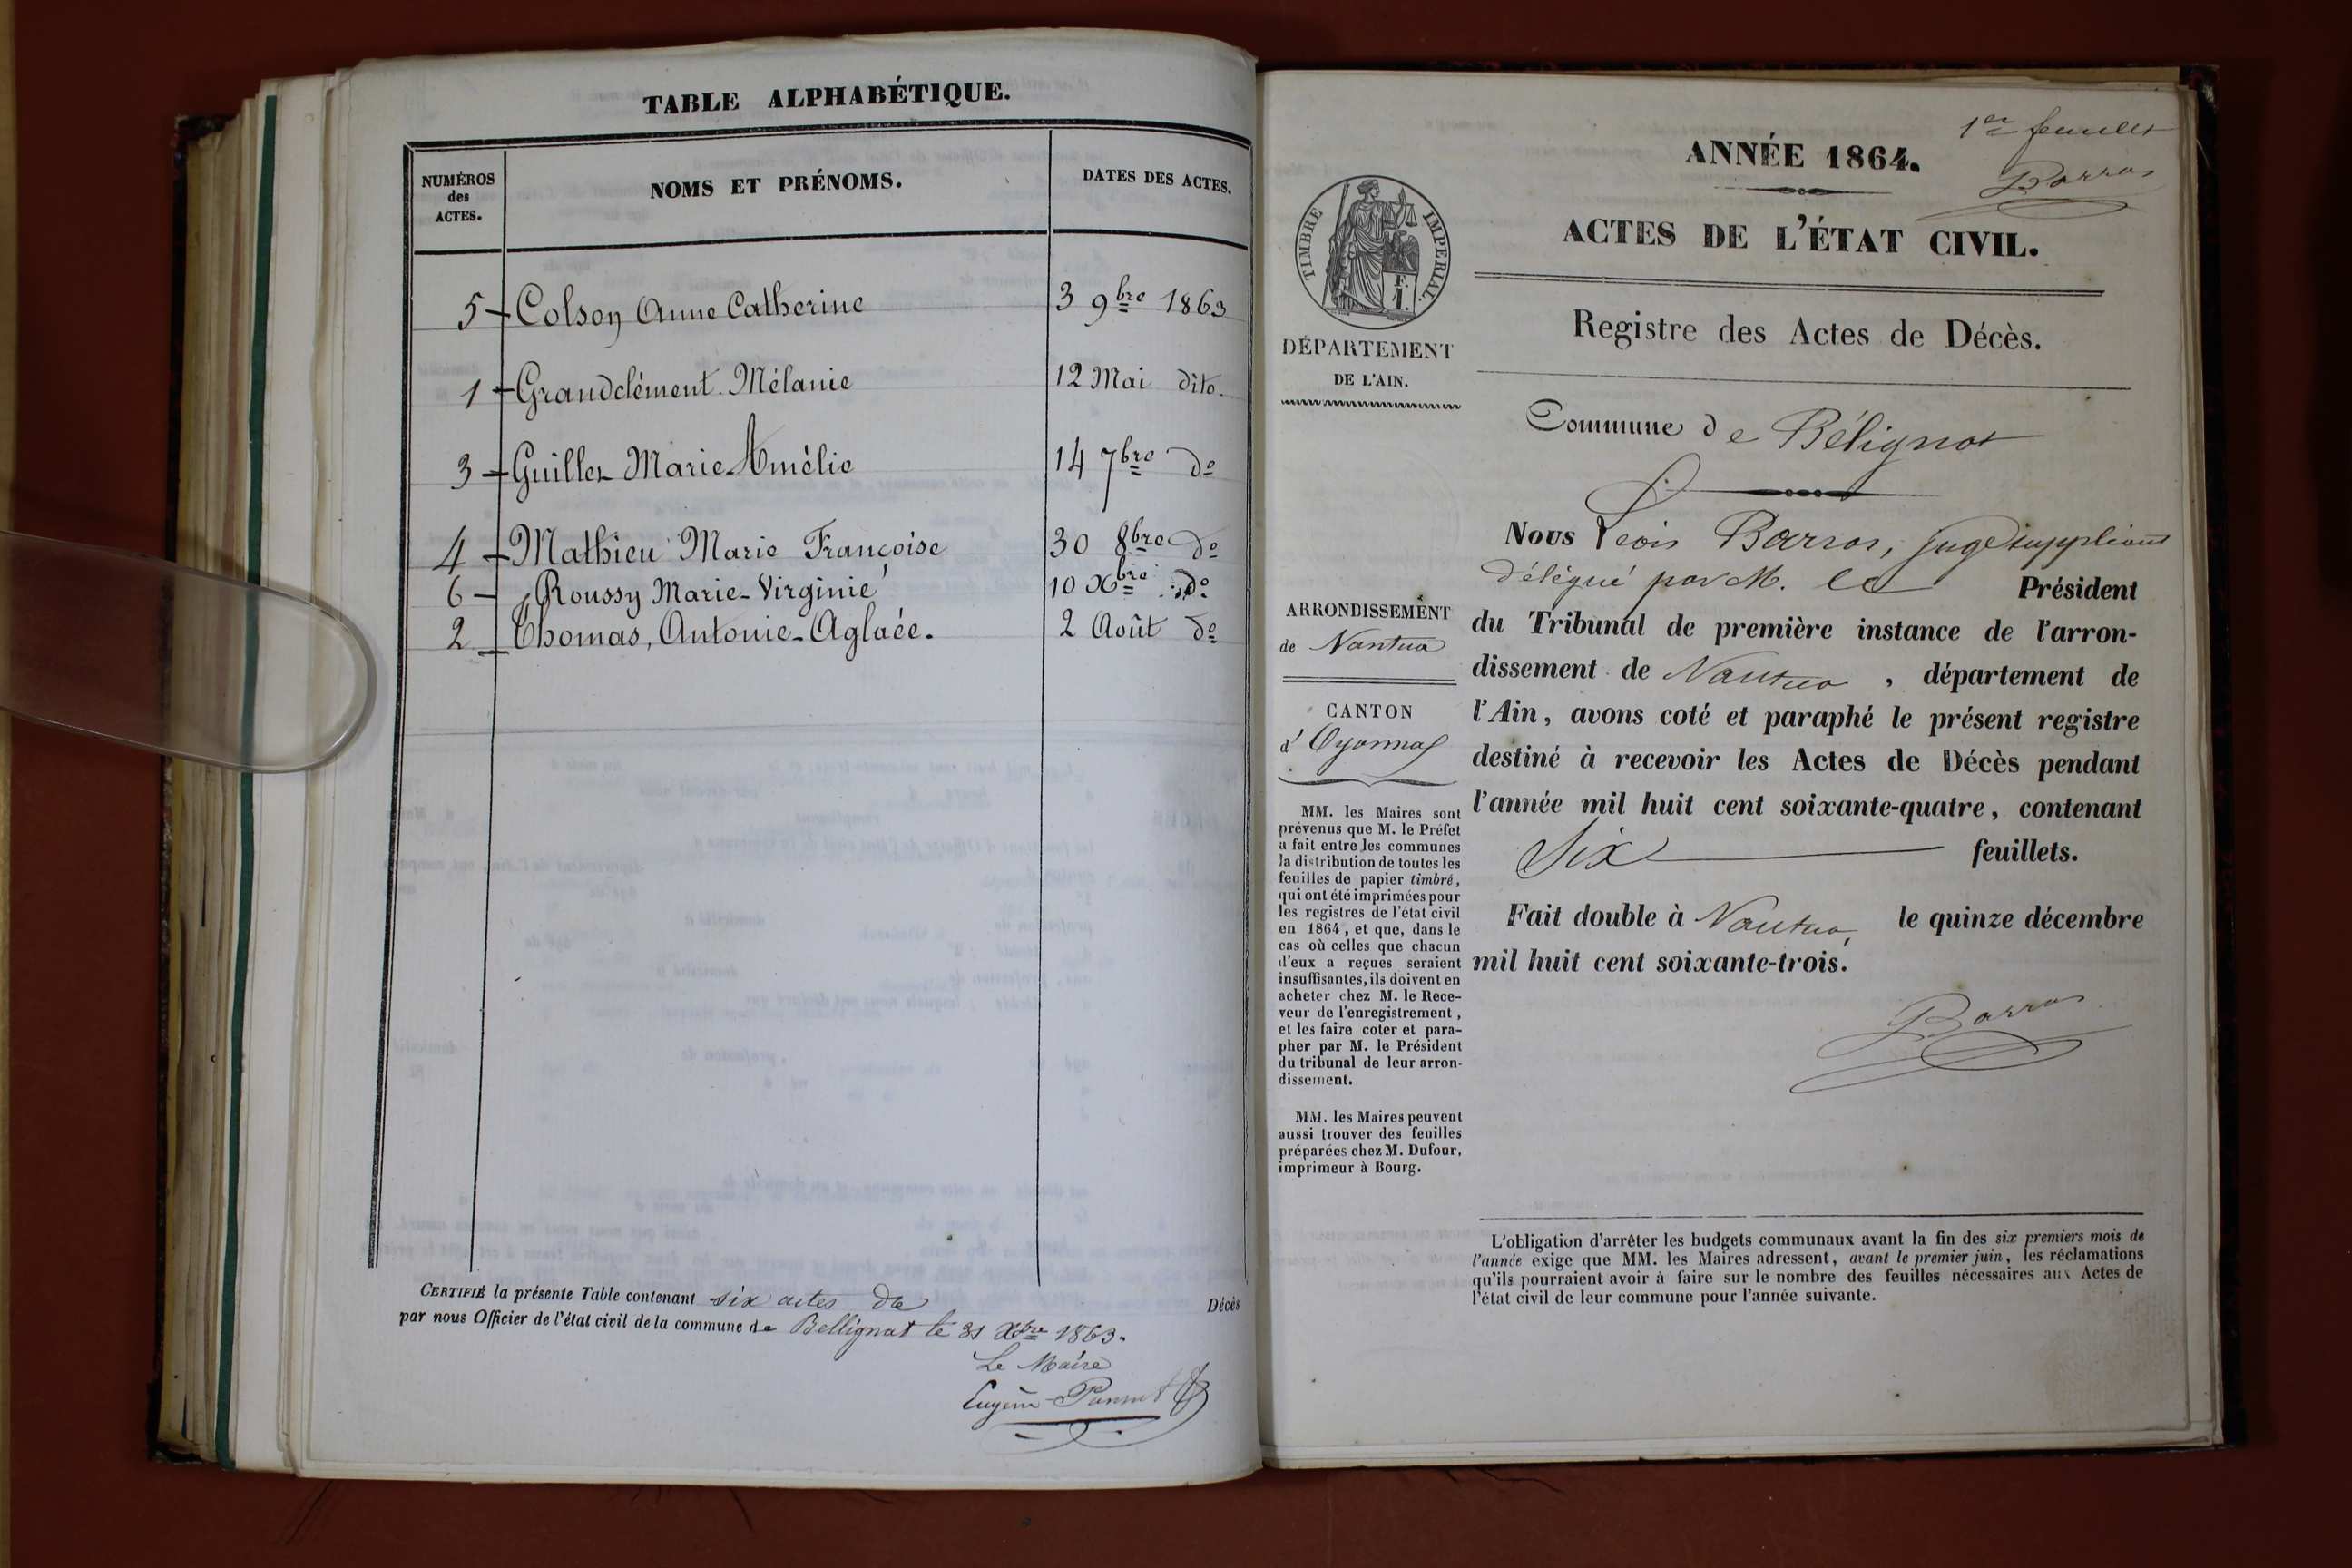 TABLE ALPHABÉTIQUE.
NUMÉROS
des
ACTES.
NOMS ET PRÉNOMS.
DATES DES ACTES.
5 Colson Anne Catherine 3 9bre 1863
1 Grandclément Mélanie 12 Mai dito.
3 Guiller Marie Amélie 14 7bre do
4 Mathieu Marie Françoise 30 8bre do
6 Roussy Marie-Virginie 10 Xbre do
2 Thomas, Antonie-Aglaée. 2 Août do
CERTIFIÉ la présente Table contenant six actes de Décès
par nous Officier de l'état civil de la commune de Bellignat le 31 Xbre 1863.
Le Maire
Eugène
1er feuillet
Barras
ANNÉE 1864.
ACTES DE L'ÉTAT CIVIL.
Registre des Actes de Décès.
TIMBRE IMPÉRIAL.
F.
1.
DÉPARTEMENT
DE L'AIN.
Commune de Bélignat
Nous Léon Barras, juge suppléant
délégué par M. le Président
du Tribunal de première instance de l'arron-
dissement de Nantua, département de
l'Ain, avons coté et paraphé le présent registre
destiné à recevoir les Actes de Décès pendant
l'année mil huit cent soixante-quatre, contenant
Six feuillets.
Fait double à Nantua, le quinze décembre
mil huit cent soixante-trois.
Barras
ARRONDISSEMENT
de Nantua
CANTON
d'Oyonnax
MM. les Maires sont
prévenus que M. le Préfet
a fait entre les communes
la distribution de toutes les
feuilles de papier timbré,
qui ont été imprimées pour
les registres de l'état civil
en 1864, et que, dans le
cas où celles que chacun
d'eux a reçues seraient
insuffisantes, ils doivent en
acheter chez M. le Rece-
veur de l'enregistrement,
et les faire coter et para-
pher par M. le Président
du tribunal de leur arron-
dissement.
MM. les Maires peuvent
aussi trouver des feuilles
préparées chez M. Dufour,
imprimeur à Bourg.
L'obligation d'arrêter les budgets communaux avant la fin des six premiers mois de
l'année exige que MM. les Maires adressent, avant le premier juin, les réclamations
qu'ils pourraient avoir à faire sur le nombre des feuilles nécessaires aux Actes de
l'état civil de leur commune pour l'année suivante.